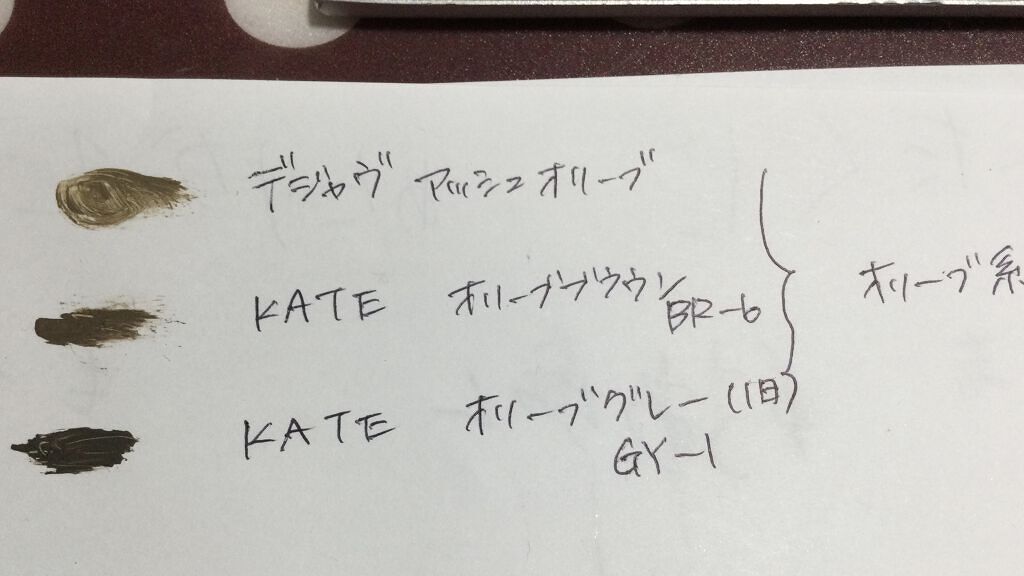 デジャヴ アッシュオリーブ
KATE オリーブブラウン
BR-6
オリーブ系
KATE オリーブグレー(旧)
GY-1